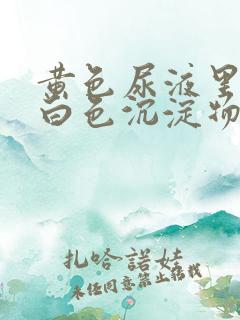 黄色尿液里
白色沉淀物
扎哈諾娃
未经同意禁止转载